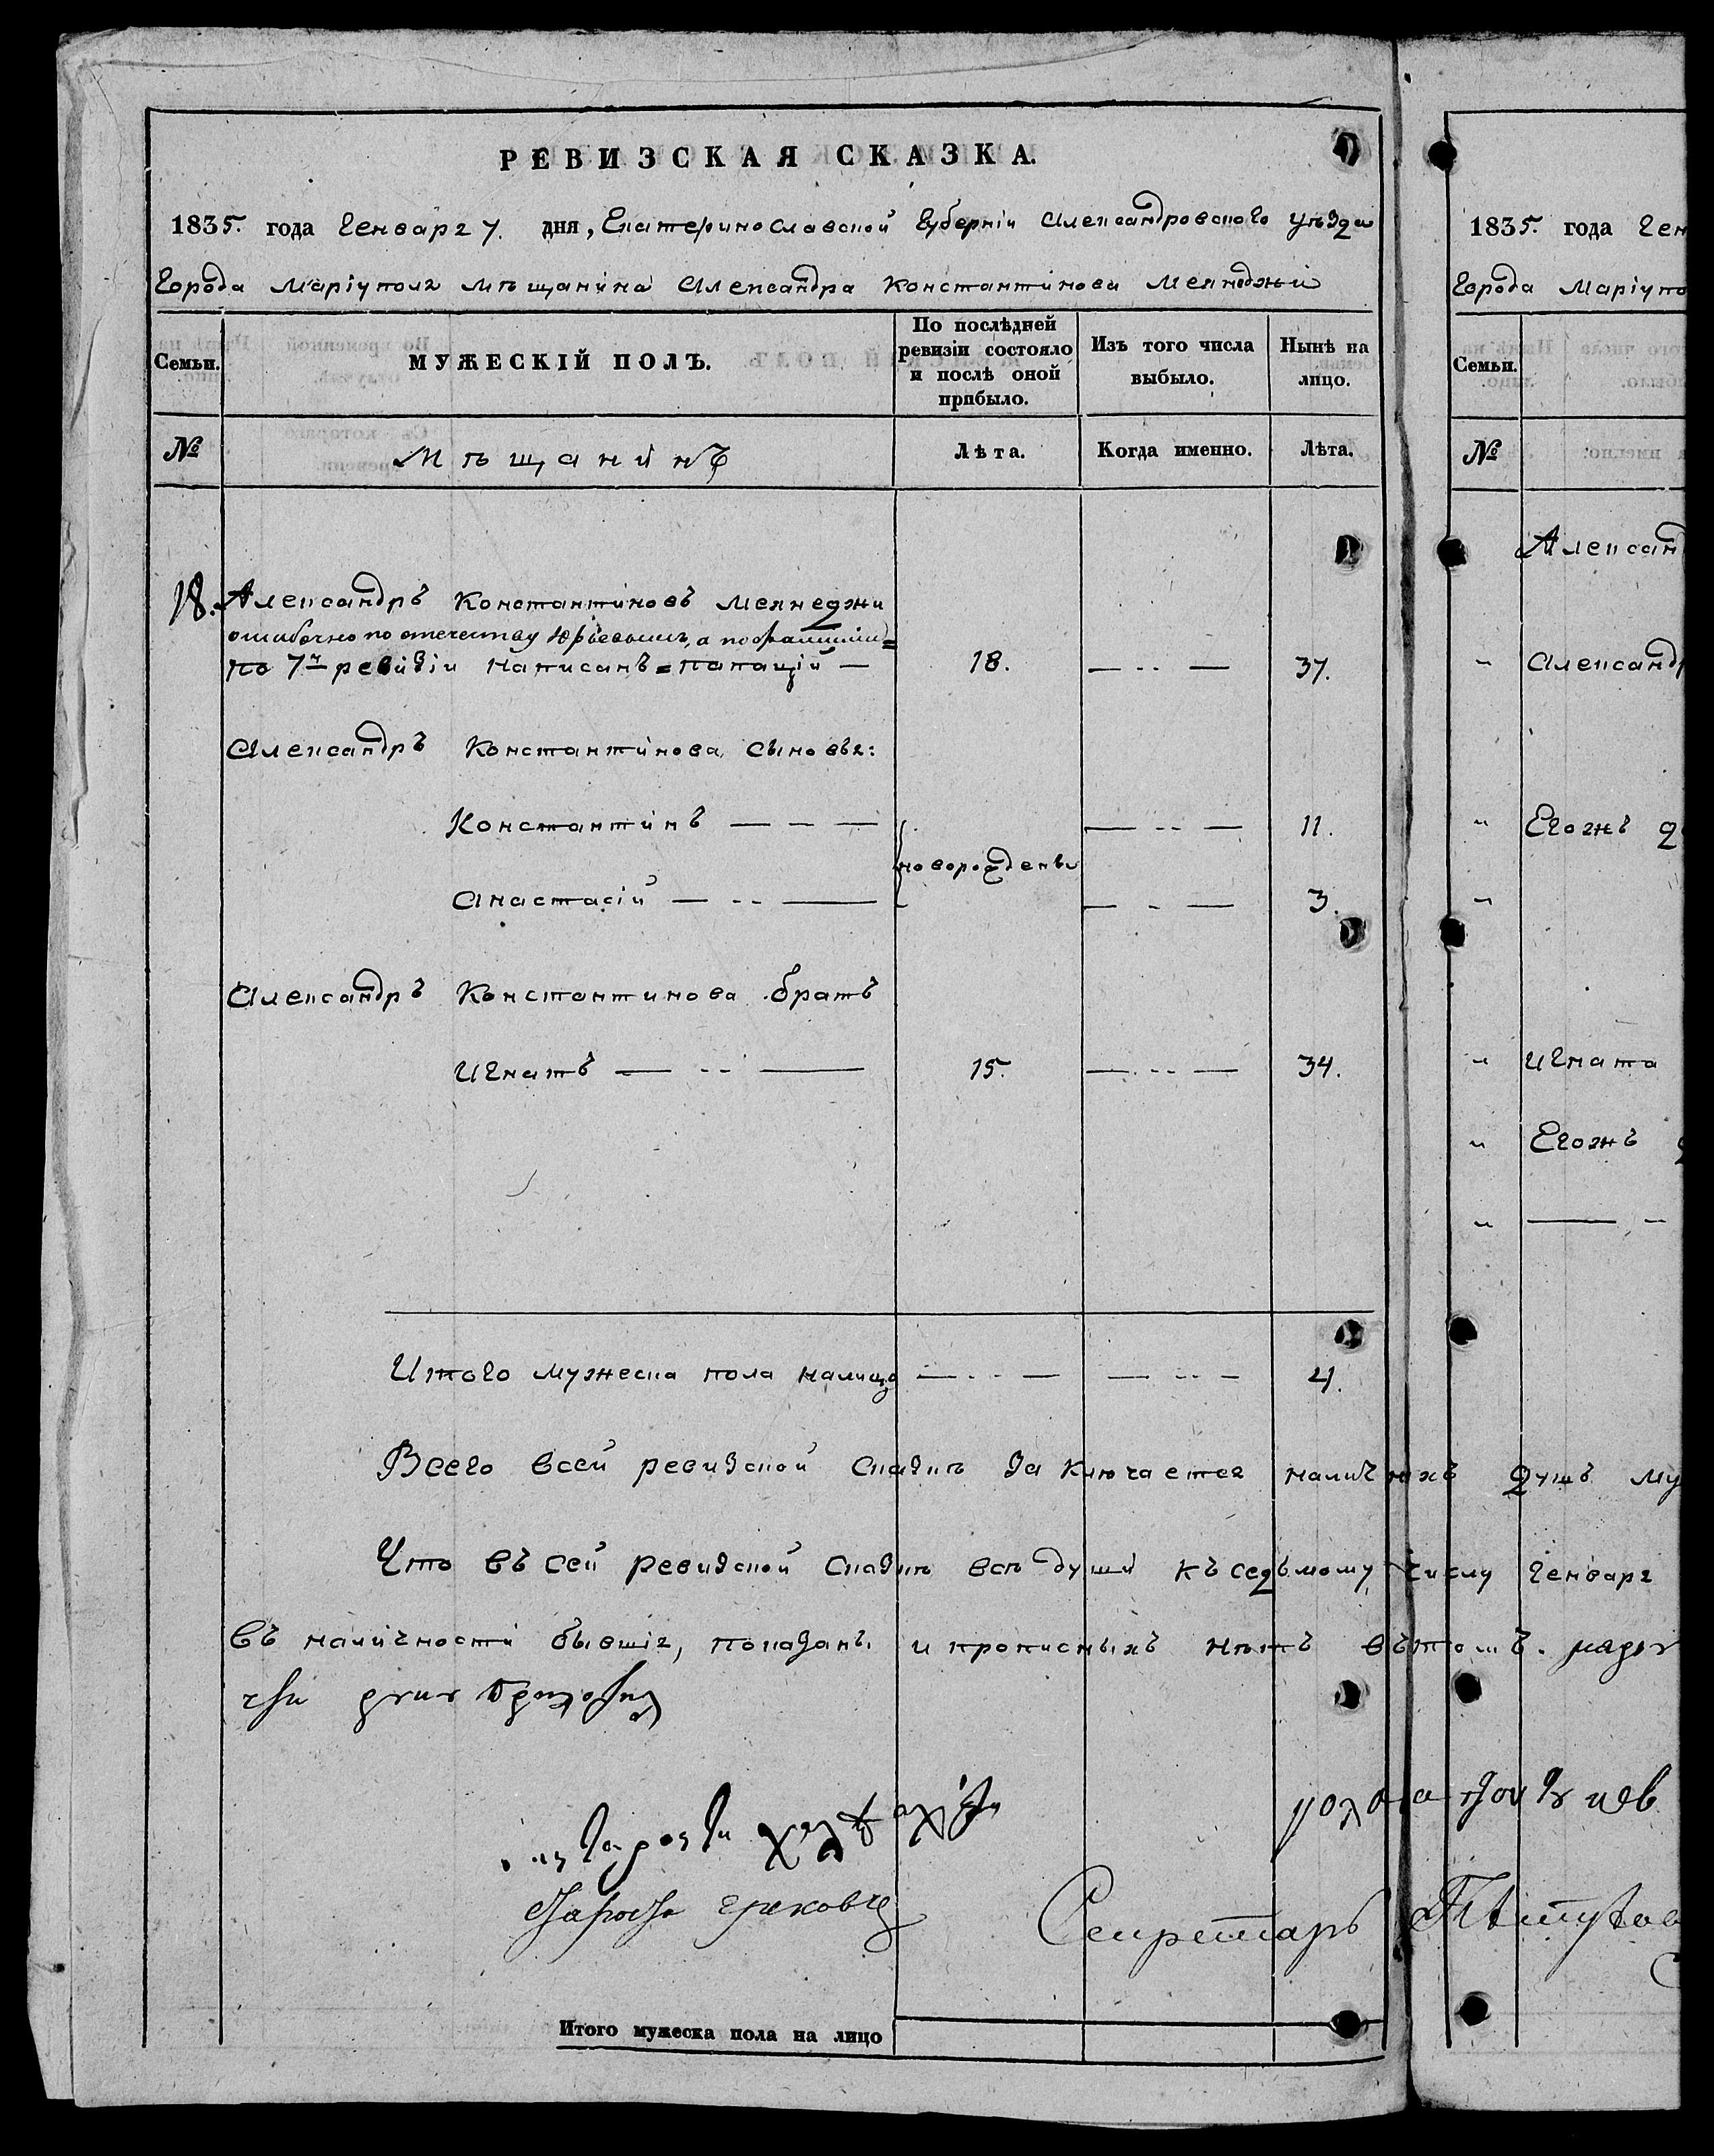 РЕВИЗСКАЯ СКАЗКА.
1835. года Генваря 7. дня, Екатеринославской Губерніи Александровскаго уѣзда
Города Маріуполя мѣщанина Александра Константинова Мекнеджи
Семьи.
МУЖЕСКІЙ ПОЛЪ.
По послѣдней ревизіи состояло и послѣ оной прибыло.
Изъ того числа выбыло.
Нынѣ на лицо.
№
Мѣщанинъ
Лѣта.
Когда именно.
Лѣта.
18. Александръ Константиновъ Мекнеджи
ошибочно по отечеству Юрьевымъ, а по фамиліи=
по 7й ревизіи написанъ = папацій — 18. — ·· — 37.
Александръ Константинова сыновья:
Константинъ — — — — ·· — 11.
новорождены
Анастасій — ·· — — - — 3.
Александръ Константинова братъ
Игнатъ — ·· — 15. — ·· — 34.
Итого мужеска пола налицо — ·· — — ·· — 4.
Всего всей ревизской сказкѣ заключается наличныхъ душъ му
Что въ сей ревизской сказкѣ всѣ души къ седьмому числу Генваря
въ наличности бывшія, показаны и прописныхъ нѣтъ въ томъ.
Староста грековъ
Секретарь
Итого мужеска пола на лицо
1835. года Ген
Города Маріупо
Семьи.
№
Александ
" Александр
" Егожъ
"
" Игната
" Егожъ
" — -